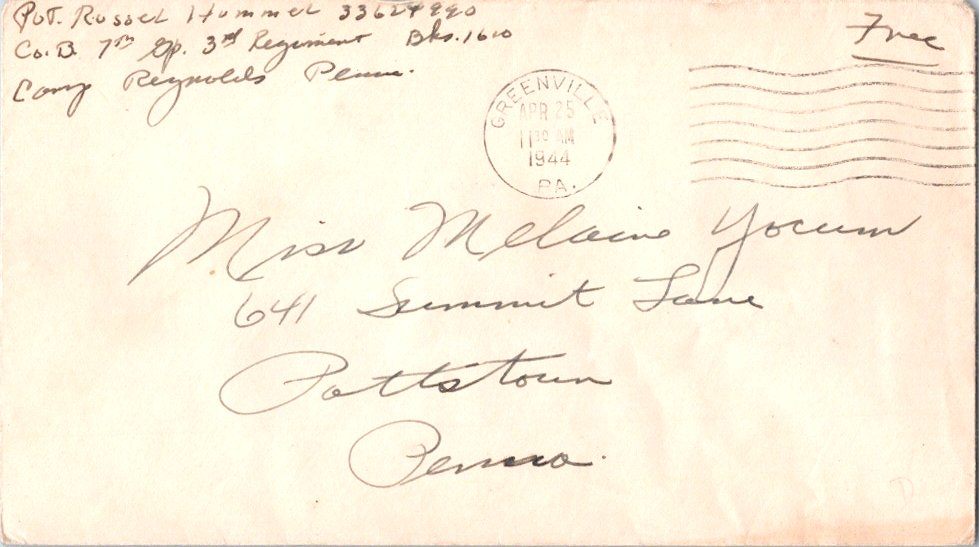 Pvt. Russel Hummel 33624990
Co. B 7th Gp. 3rd Regiment Bks. 1610
Camp Reynolds Penn.
Free
GREENVILLE
APR 25
11 30 AM
1944
PA.
Miss Melaine Yocum
641 Summit Lane
Pottstown
Penna.